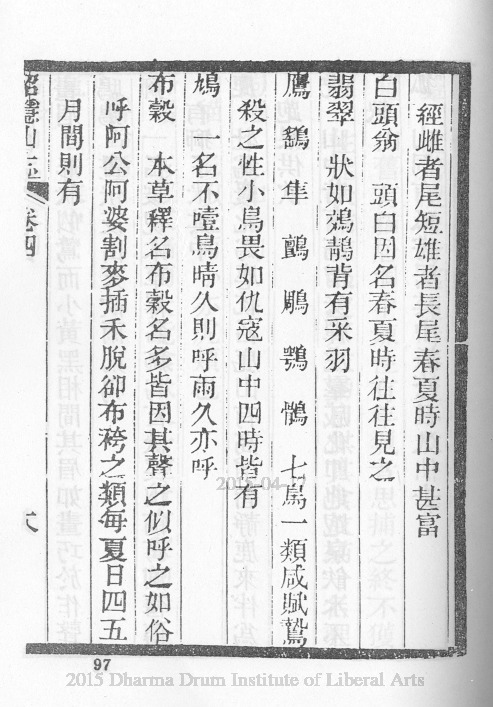 經雌者尾短雄者長尾春夏時山中甚富
白頭翁　頭白因名春夏時往往見之
翡翠　狀如鵁鶄背有采羽
鷹　鷂　隼　鸇　鵰　鶚　鶻　七鳥一類咸賦鷙
殺之性小鳥畏如仇寇山中四時皆有
鳩　一名不噎鳥晴久則呼雨久亦呼
布穀　本草釋名布穀名多皆因其聲之似呼之如俗
呼阿公阿婆割麥插禾脫卻布袴之類每夏日四五
月間則有
招隱山志　卷四
97
2015 Dharma Drum Institute of Liberal Arts